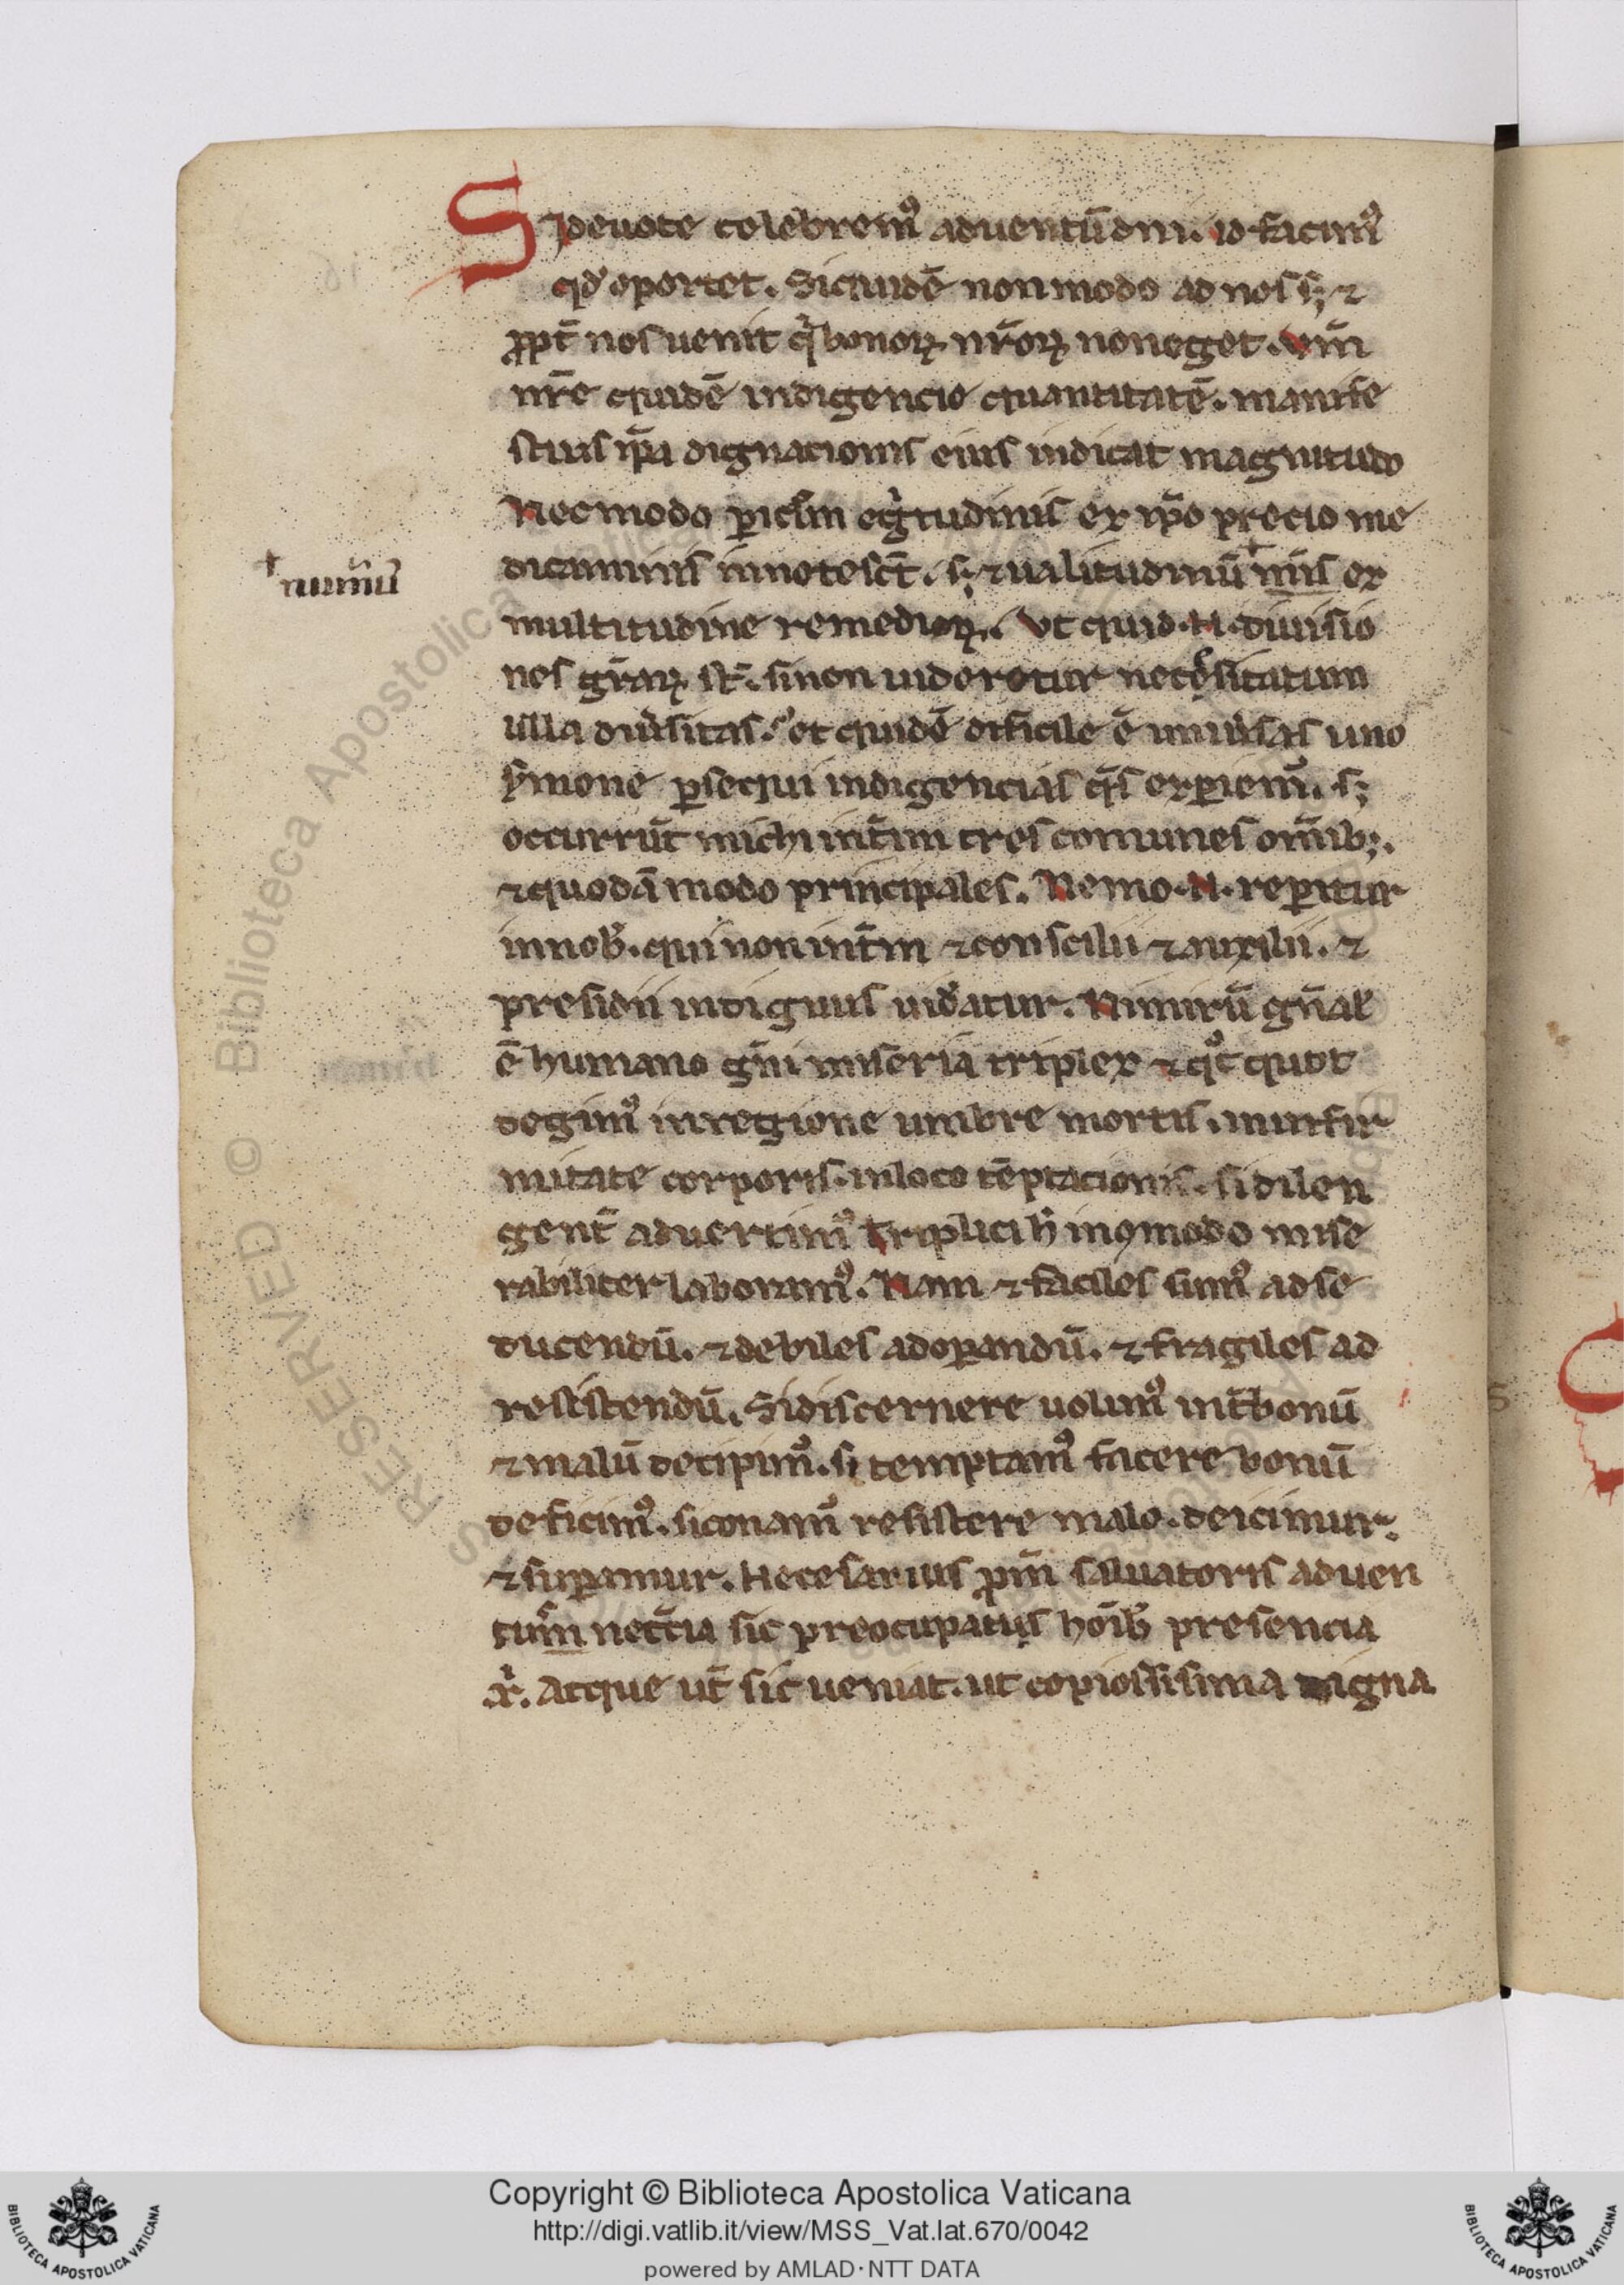 Si deuote celebrem᷒ aduentū dnı̄. id facim᷒
qd̛ oportet. Siquidē non modo ad nos sꝫ ⁊
ꝓpt̄ nos uenit qͥ bonoꝝ nr̄oꝝ non eget. Vm̄
nr̄e quidē indigencie quantitatē. manife
stius ip̄a dignacionis eius indicat magnitudo
Nec modo ꝑicłm egͥtudinis ex ip̄o precio me
dicaminis innotesct̄. sꝫ ⁊ ualitudinū mı̄s ex
+ num̄ū
multitudine remedioꝝ. Vt quid .N. diuisio
nes gr̄aꝝ st̄. si non uideretur necesitatum
ulla diuˀsitas. et quidē dificile ē uniuˀsas uno
sˀmone ꝑsequi indigencias qͣs exꝑiem᷒. sꝫ
occurrūt michi int̄im tres comunes om̄ibꝫ.
⁊ quodā modo principales. Nemo .N. reꝑitur
in nob̛. qui non int̄im ⁊ conscilii ⁊ auxilii. ⁊
presidii indiguus uid̛atur. Nimirū gn̄al̛
ē humano gn̄i miseria triplex ⁊ qͦt quot
degim᷒ in regione umbre mortis. in infir
mitate corporis. in loco tēptacionis. si dilen
gent̄ aduertim᷒ triplici h̛ inꝯmodo mise
rabiliter laboram᷒. Nam ⁊ faciles sum᷒ ad se
ducendū. ⁊ debiles ad oꝑandū. ⁊ fragiles ad
resistendū. Si discernere uolum᷒ int̄ bonū
⁊ malū decipim᷒. si temptam᷒ facere bonū
deficim᷒. si conam᷒ resistere malo. deicimur.
⁊ suꝑamur. Necesarius ꝓm̄ saluatoris aduen
tum̄ necc̄ia sic preocupatus hoı̄b̛ presencia
xͥ. Atque ut̄ sic ueniat. ut copiosissima digna
Copyright © Biblioteca Apostolica Vaticana
http://digi.vatlib.it/view/MSS_Vat.lat.670/0042
powered by AMLAD·NTT DATA
BIBLIOTECA APOSTOLICA VATICANA
BIBLIOTECA APOSTOLICA VATICANA